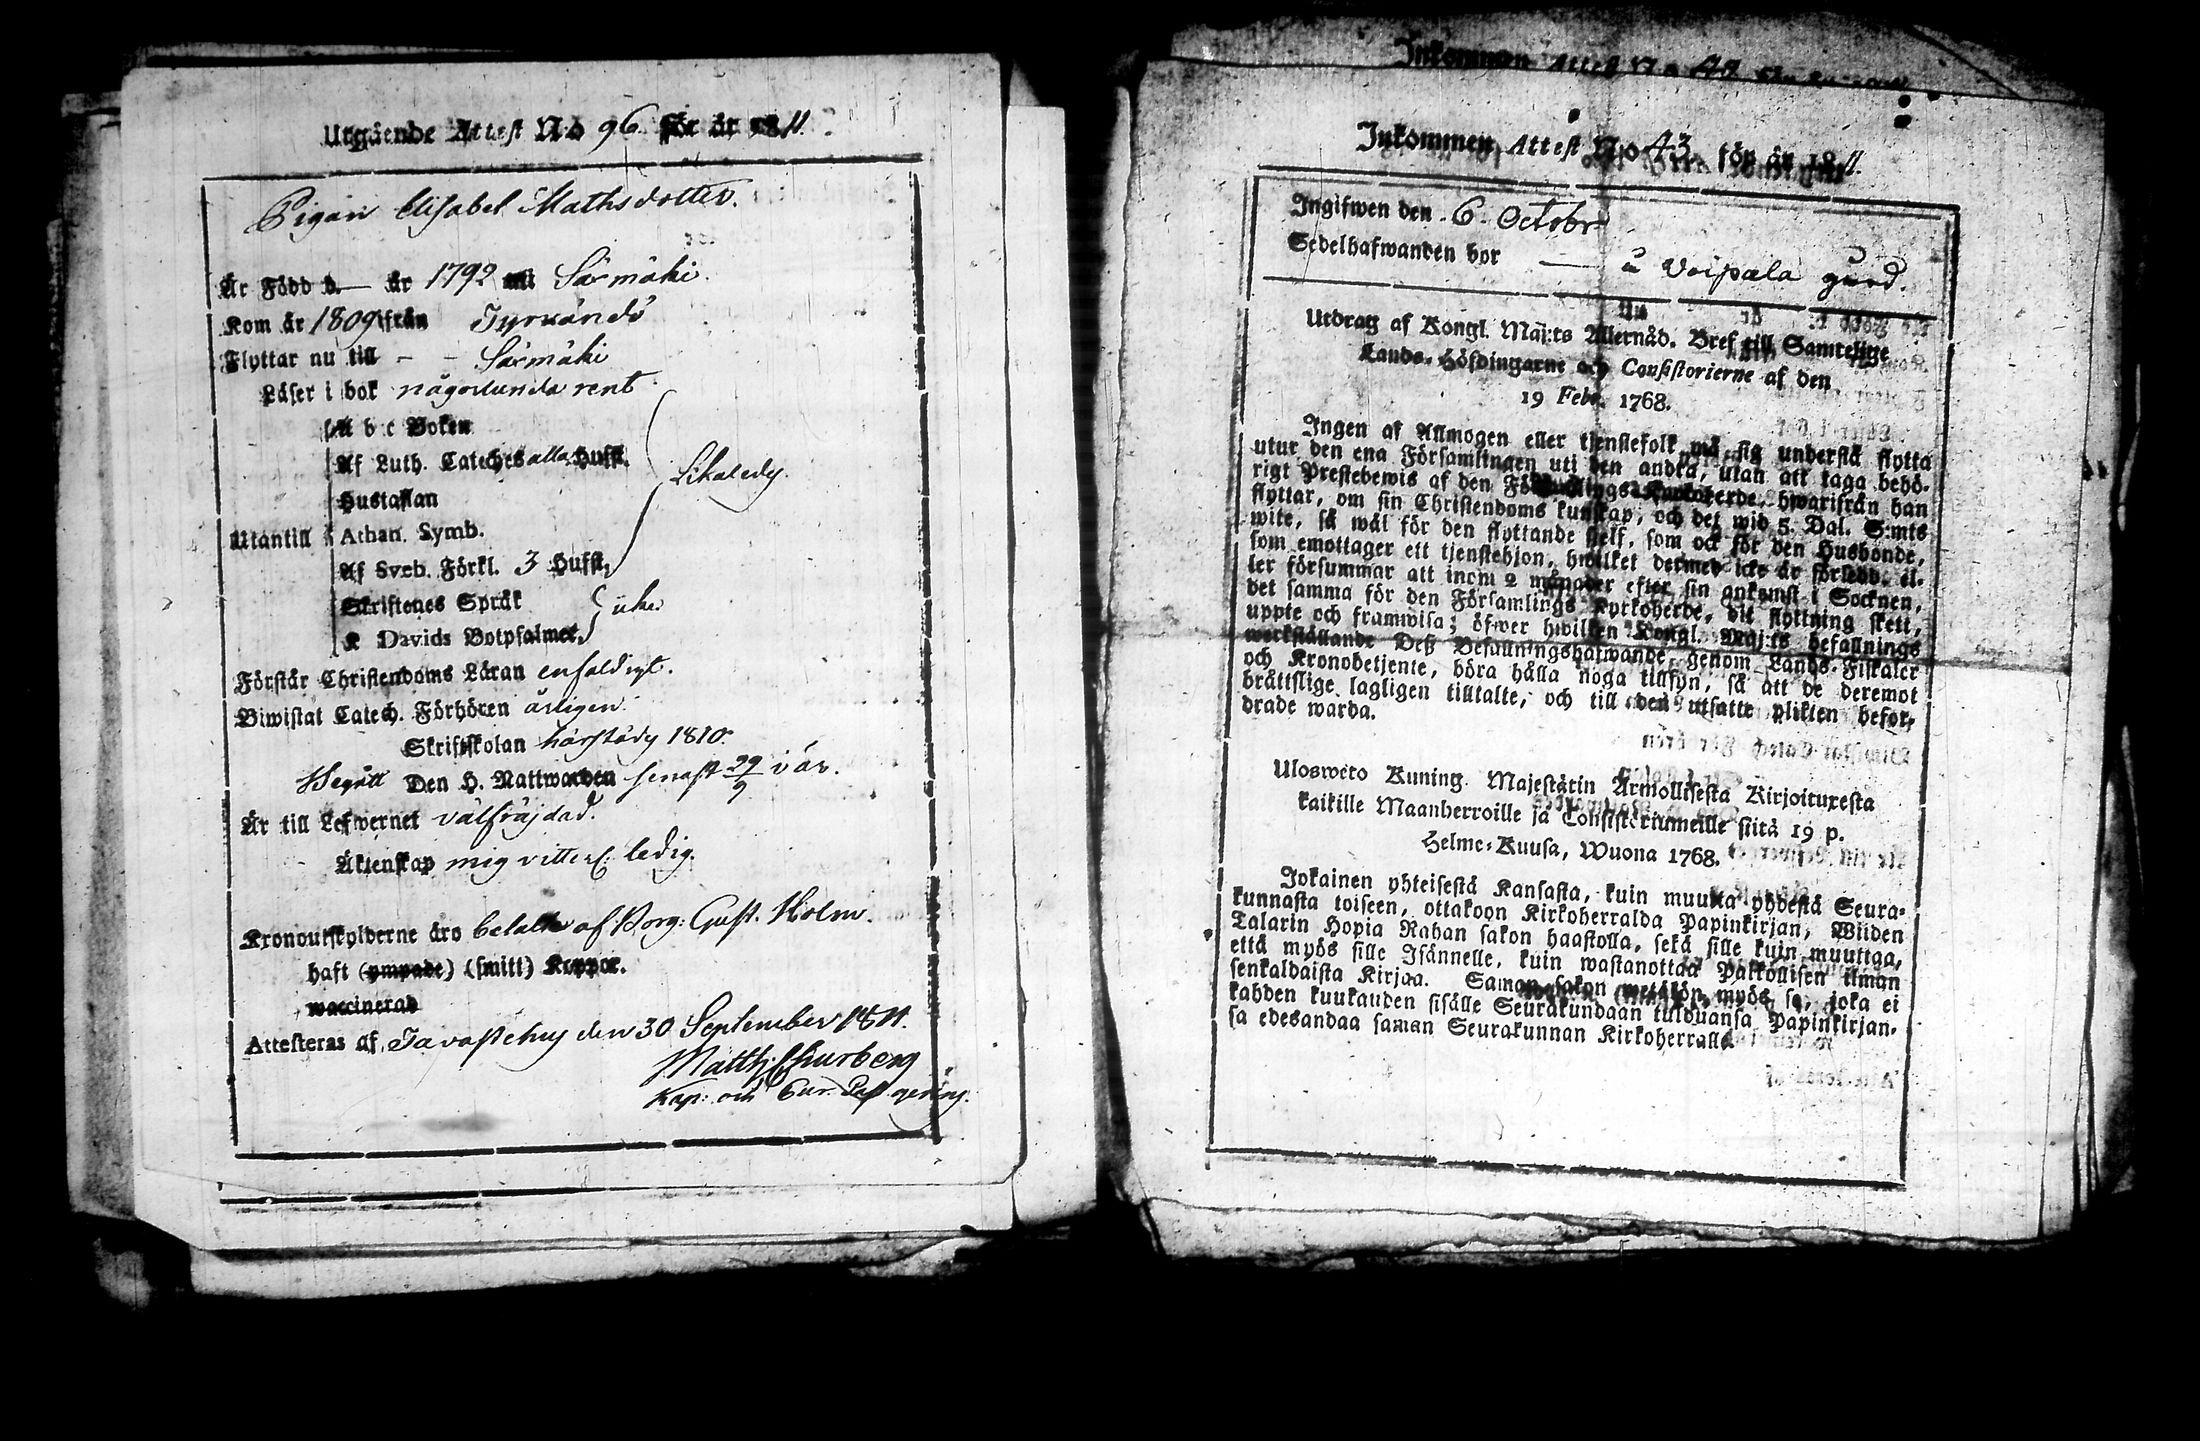 Utgående Attest No 96. för år 1811.
Pigan Elisabet Mathsdotter.
Är Född d. — år 1792 uti Särmäki.
Kom år 1809 ifrån Tyrvändö
Flyttar nu till - - Särmäki
Läser i bok någorlunda rent
A b c Boken
Af Luth. Cateches alla Hufst.
Hustaflan
Likaledes.
Utantill Athan. Symb.
Af Sveb. Förkl. 3 Hufst.
Skriftenes Språk
K Davids Botpsalmer,
Förstår Christendoms Läran enfaldigt.
Biwistat Catech. Förhören årligen.
Skriftskolan härstädes 1810.
Begått Den H. Nattwarden senast 29/9 i år.
Är till Lefwernet välfräjdad.
Äktenskap mig vitterl. ledig.
Kronoutskylderne äro betalte af Borg: Gust. Holm.
haft (ympade) (smitt) Koppor.
waccinerad
Attesteras af Tavastehus den 30 September 1811.
Matth: Churberg
Kap: och
Inkommen Attest No 42
Inkommen Attest No 43 för år 1811.
Ingifwen den 6 Octobr
Sedelhafwanden bor — å Voipala gård.
Utdrag af Kongl. Maj:ts Allernåd. Bref till Samtelige
Lands-Höfdingarne och Consistorierne af den
19 Febr. 1768.
Ingen af Allmogen eller tjenstefolk må sig understå flytta
utur den ena Församlingen uti den andra, utan att taga behö-
rigt Prestebewis af den Församlings Kyrkoherde, hwarifrån han
flyttar, om sin Christendoms kunskap, och det wid 5. Dal. S:mts
wite, så wäl för den flyttande sjelf, som ock för den Husbonde,
som emottager ett tjenstehjon, hwilket dermed icke är försedd, el-
ler försummar att inom 2 månader efter sin ankomst i Socknen,
det samma för den Församlings Kyrkoherde, dit flyttning skett,
uppte och framwisa; öfwer hwilken Kongl. Maj:ts befallnings
werkställande Deß Befallningshafwande, genom Lands-Fiskaler
och Kronobetjente, böra hålla noga tillsyn, så att de deremot
bråttslige lagligen tilltalte, och till den utsatte plikten befor-
drade warda.
Ulosweto Kuning. Majestätin Armollisesta Kirjoituxesta
kaikille Maanherroille ja Consistoriumeille siitä 19 p.
Helme-Kuusa, Wuona 1768.
Jokainen yhteisestä Kansasta, kuin muutta yhdestä Seura-
kunnasta toiseen, ottakoon Kirkoherralda Papinkirjan, Wiiden
Talarin Hopia Rahan sakon haastolla, sekä sille kuin muuttaa,
että myös sille Isännelle, kuin wastanottaa Palkollisen ilman
senkaldaista Kirjaa. Saman sakon wetäkön myös se, joka ei
kahden kuukauden sisälle Seurakundaan tulduansa Papinkirjan-
sa edesandaa saman Seurakunnan Kirkoherralle.